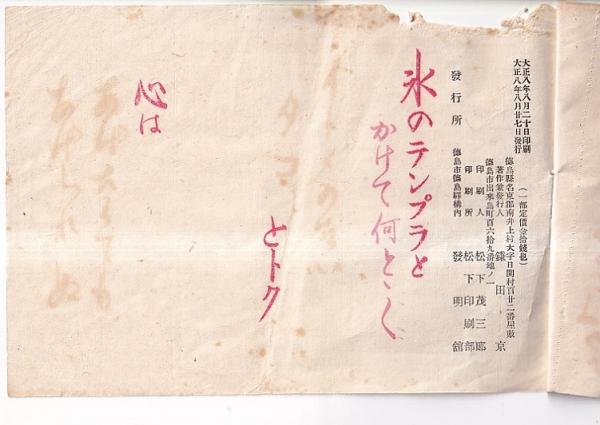 大正八年八月二十日印刷
大正八年八月廿七日發行
(一部定價金拾錢也)
德島縣名東郡南井上村大字日開村百廿二番屋敷
著作兼發行人 鎌田京
德島市出來島町百六拾九番地ノ一
印刷人 松下茂三郎
印刷所 松下印刷部
德島市德島驛構內
發行所 發明舘
氷のテンプラと
かけて何とく
とトク
心は